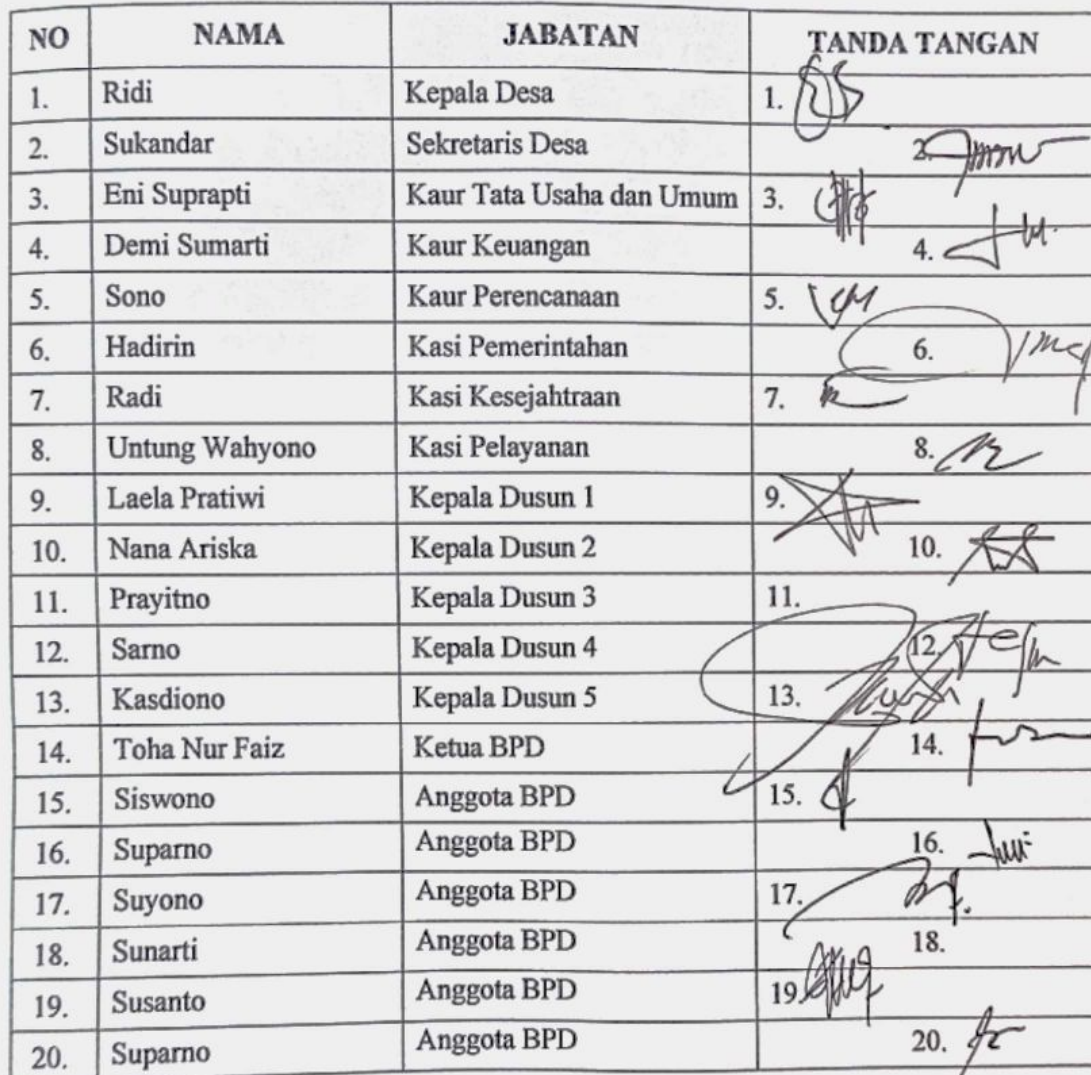 NO NAMA JABATAN TANDA TANGAN
1. Ridi Kepala Desa 1.
2. Sukandar Sekretaris Desa 2.
3. Eni Suprapti Kaur Tata Usaha dan Umum 3.
4. Demi Sumarti Kaur Keuangan 4.
5. Sono Kaur Perencanaan 5.
6. Hadirin Kasi Pemerintahan 6.
7. Radi Kasi Kesejahtraan 7.
8. Untung Wahyono Kasi Pelayanan 8.
9. Laela Pratiwi Kepala Dusun 1 9.
10. Nana Ariska Kepala Dusun 2 10.
11. Prayitno Kepala Dusun 3 11.
12. Sarno Kepala Dusun 4 12.
13. Kasdiono Kepala Dusun 5 13.
14. Toha Nur Faiz Ketua BPD 14.
15. Siswono Anggota BPD 15.
16. Suparno Anggota BPD 16.
17. Suyono Anggota BPD 17.
18. Sunarti Anggota BPD 18.
19. Susanto Anggota BPD 19.
20. Suparno Anggota BPD 20.